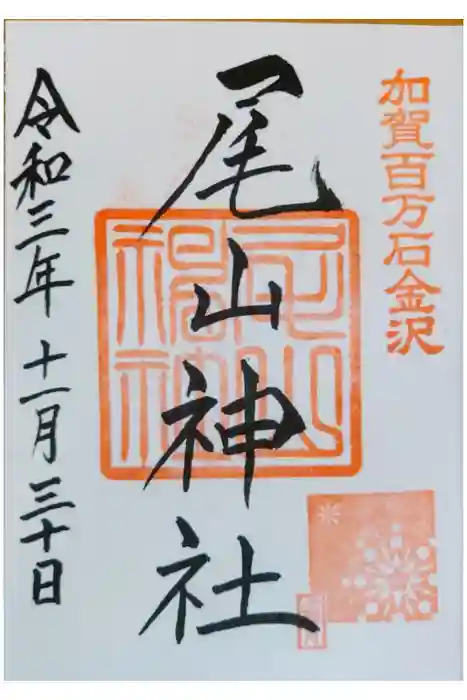 加賀百万石金沢
尾山神社
令和三年 十一月 三十日